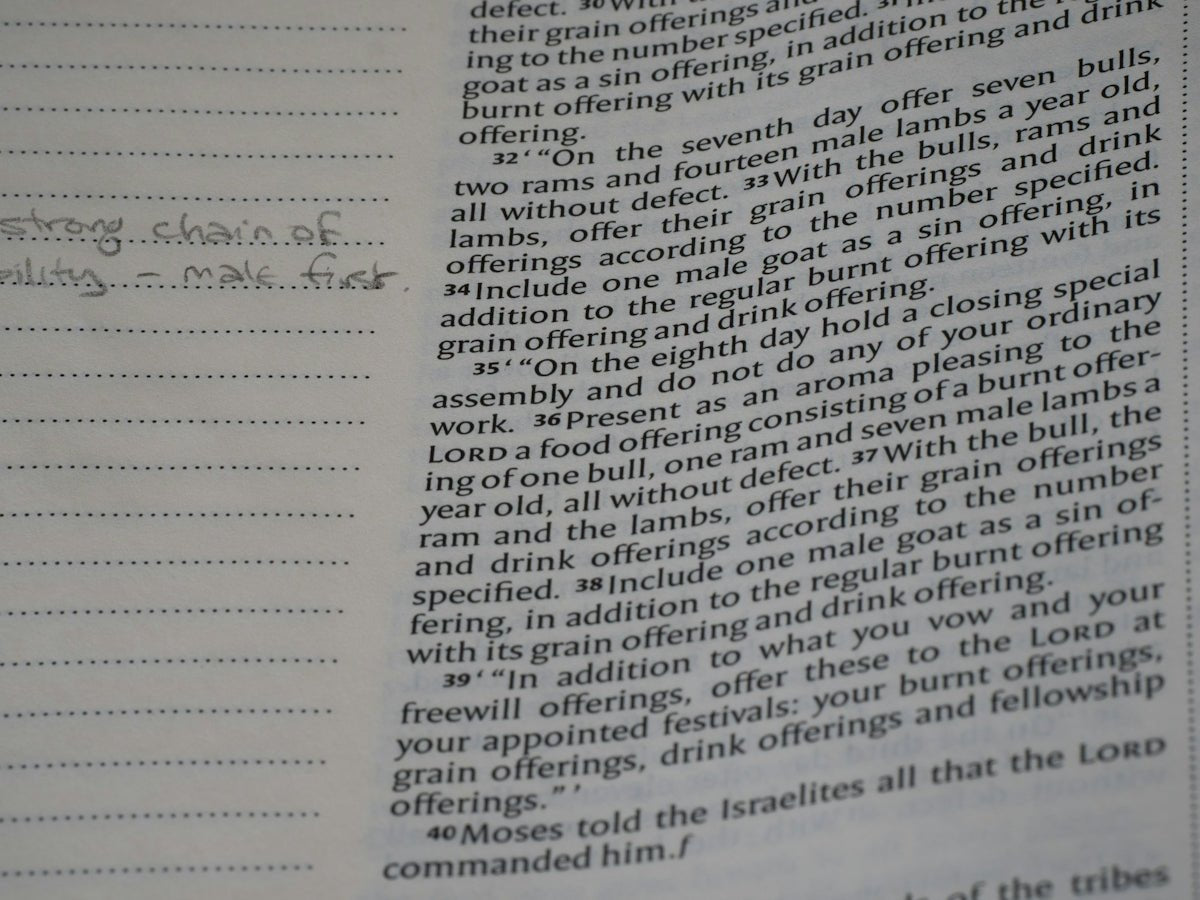 strong chain of
– male first.
defect. 30 With
their grain offerings and
ing to the number specified. 31
goat as a sin offering, in addition to the
burnt offering with its grain offering and drink
offering.
32 ‘ “On the seventh day offer seven bulls,
two rams and fourteen male lambs a year old,
all without defect. 33 With the bulls, rams and
lambs, offer their grain offerings and drink
offerings according to the number specified.
34 Include one male goat as a sin offering, in
addition to the regular burnt offering with its
grain offering and drink offering.
35 ‘ “On the eighth day hold a closing special
assembly and do not do any of your ordinary
work. 36 Present as an aroma pleasing to the
LORD a food offering consisting of a burnt offer-
ing of one bull, one ram and seven male lambs a
year old, all without defect. 37 With the bull, the
ram and the lambs, offer their grain offerings
and drink offerings according to the number
specified. 38 Include one male goat as a sin of-
fering, in addition to the regular burnt offering
with its grain offering and drink offering.
39 ‘ “In addition to what you vow and your
freewill offerings, offer these to the LORD at
your appointed festivals: your burnt offerings,
grain offerings, drink offerings and fellowship
offerings.” ’
40 Moses told the Israelites all that the LORD
commanded him.f
of the tribes